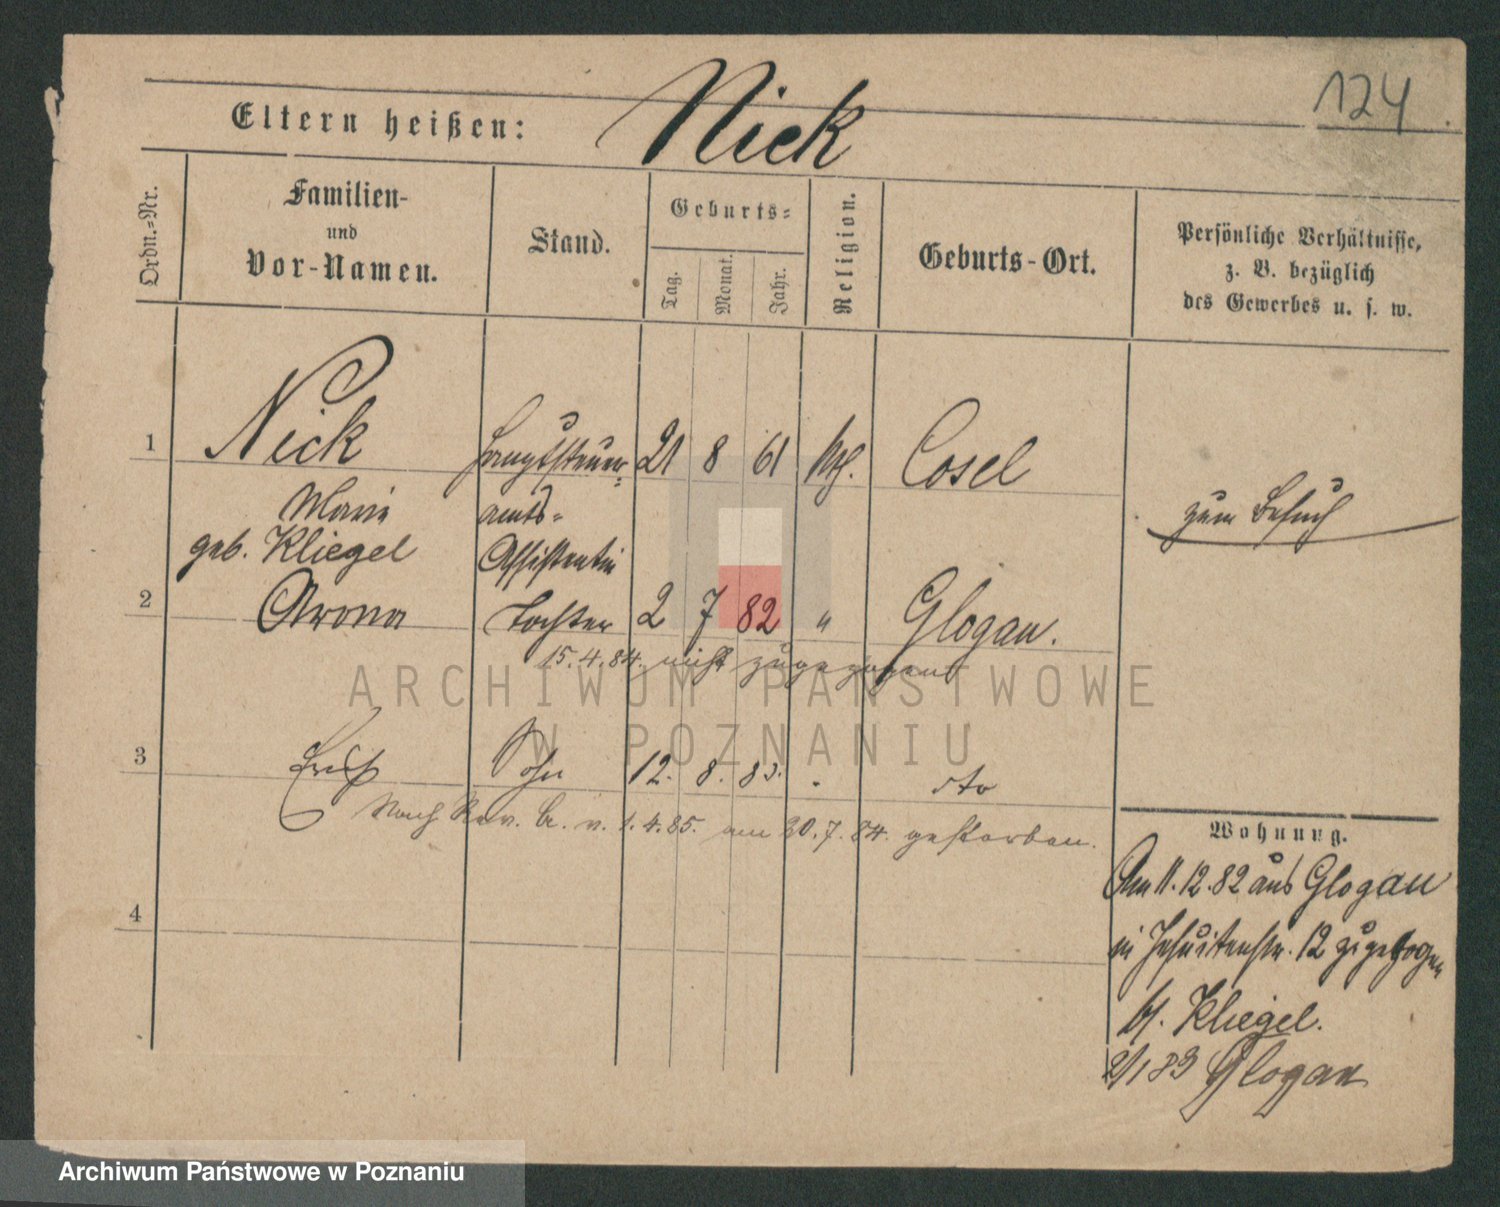 124
Eltern heißen: Nick
Ordn.=Nr.
Familien-
und
Vor-Namen.
Stand.
Geburts=
Tag.
Monat.
Jahr.
Religion.
Geburts-Ort.
Persönliche Verhältnisse,
z. B. bezüglich
des Gewerbes u. s. w.
1 Nick Hauptsteuer= 21 8 61 Cosel
Marie amts=
geb. Kliegel Assistentin
zum Besuch
2 Arona Tochter 2 7 82 " Glogau.
15.4.84. nicht zugezogen
3 Erich Sohn 12. 8. 83. dto
Nach Rev. v. 1.4.85. am 30.7.84. gestorben.
4
Wohnung.
Am 11.12.82 aus Glogau
in Jesuitenstr. 12 zugezogen
bf. Kliegel.
2/1 83 Glogau
ARCHIWUM PAŃSTWOWE
W POZNANIU
Archiwum Państwowe w Poznaniu